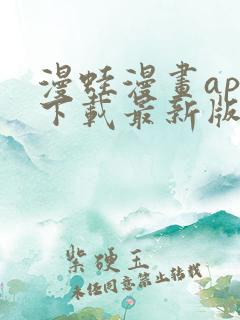 漫蛙漫畫ap
下載最新版
紫硬玉
未经同意禁止转载